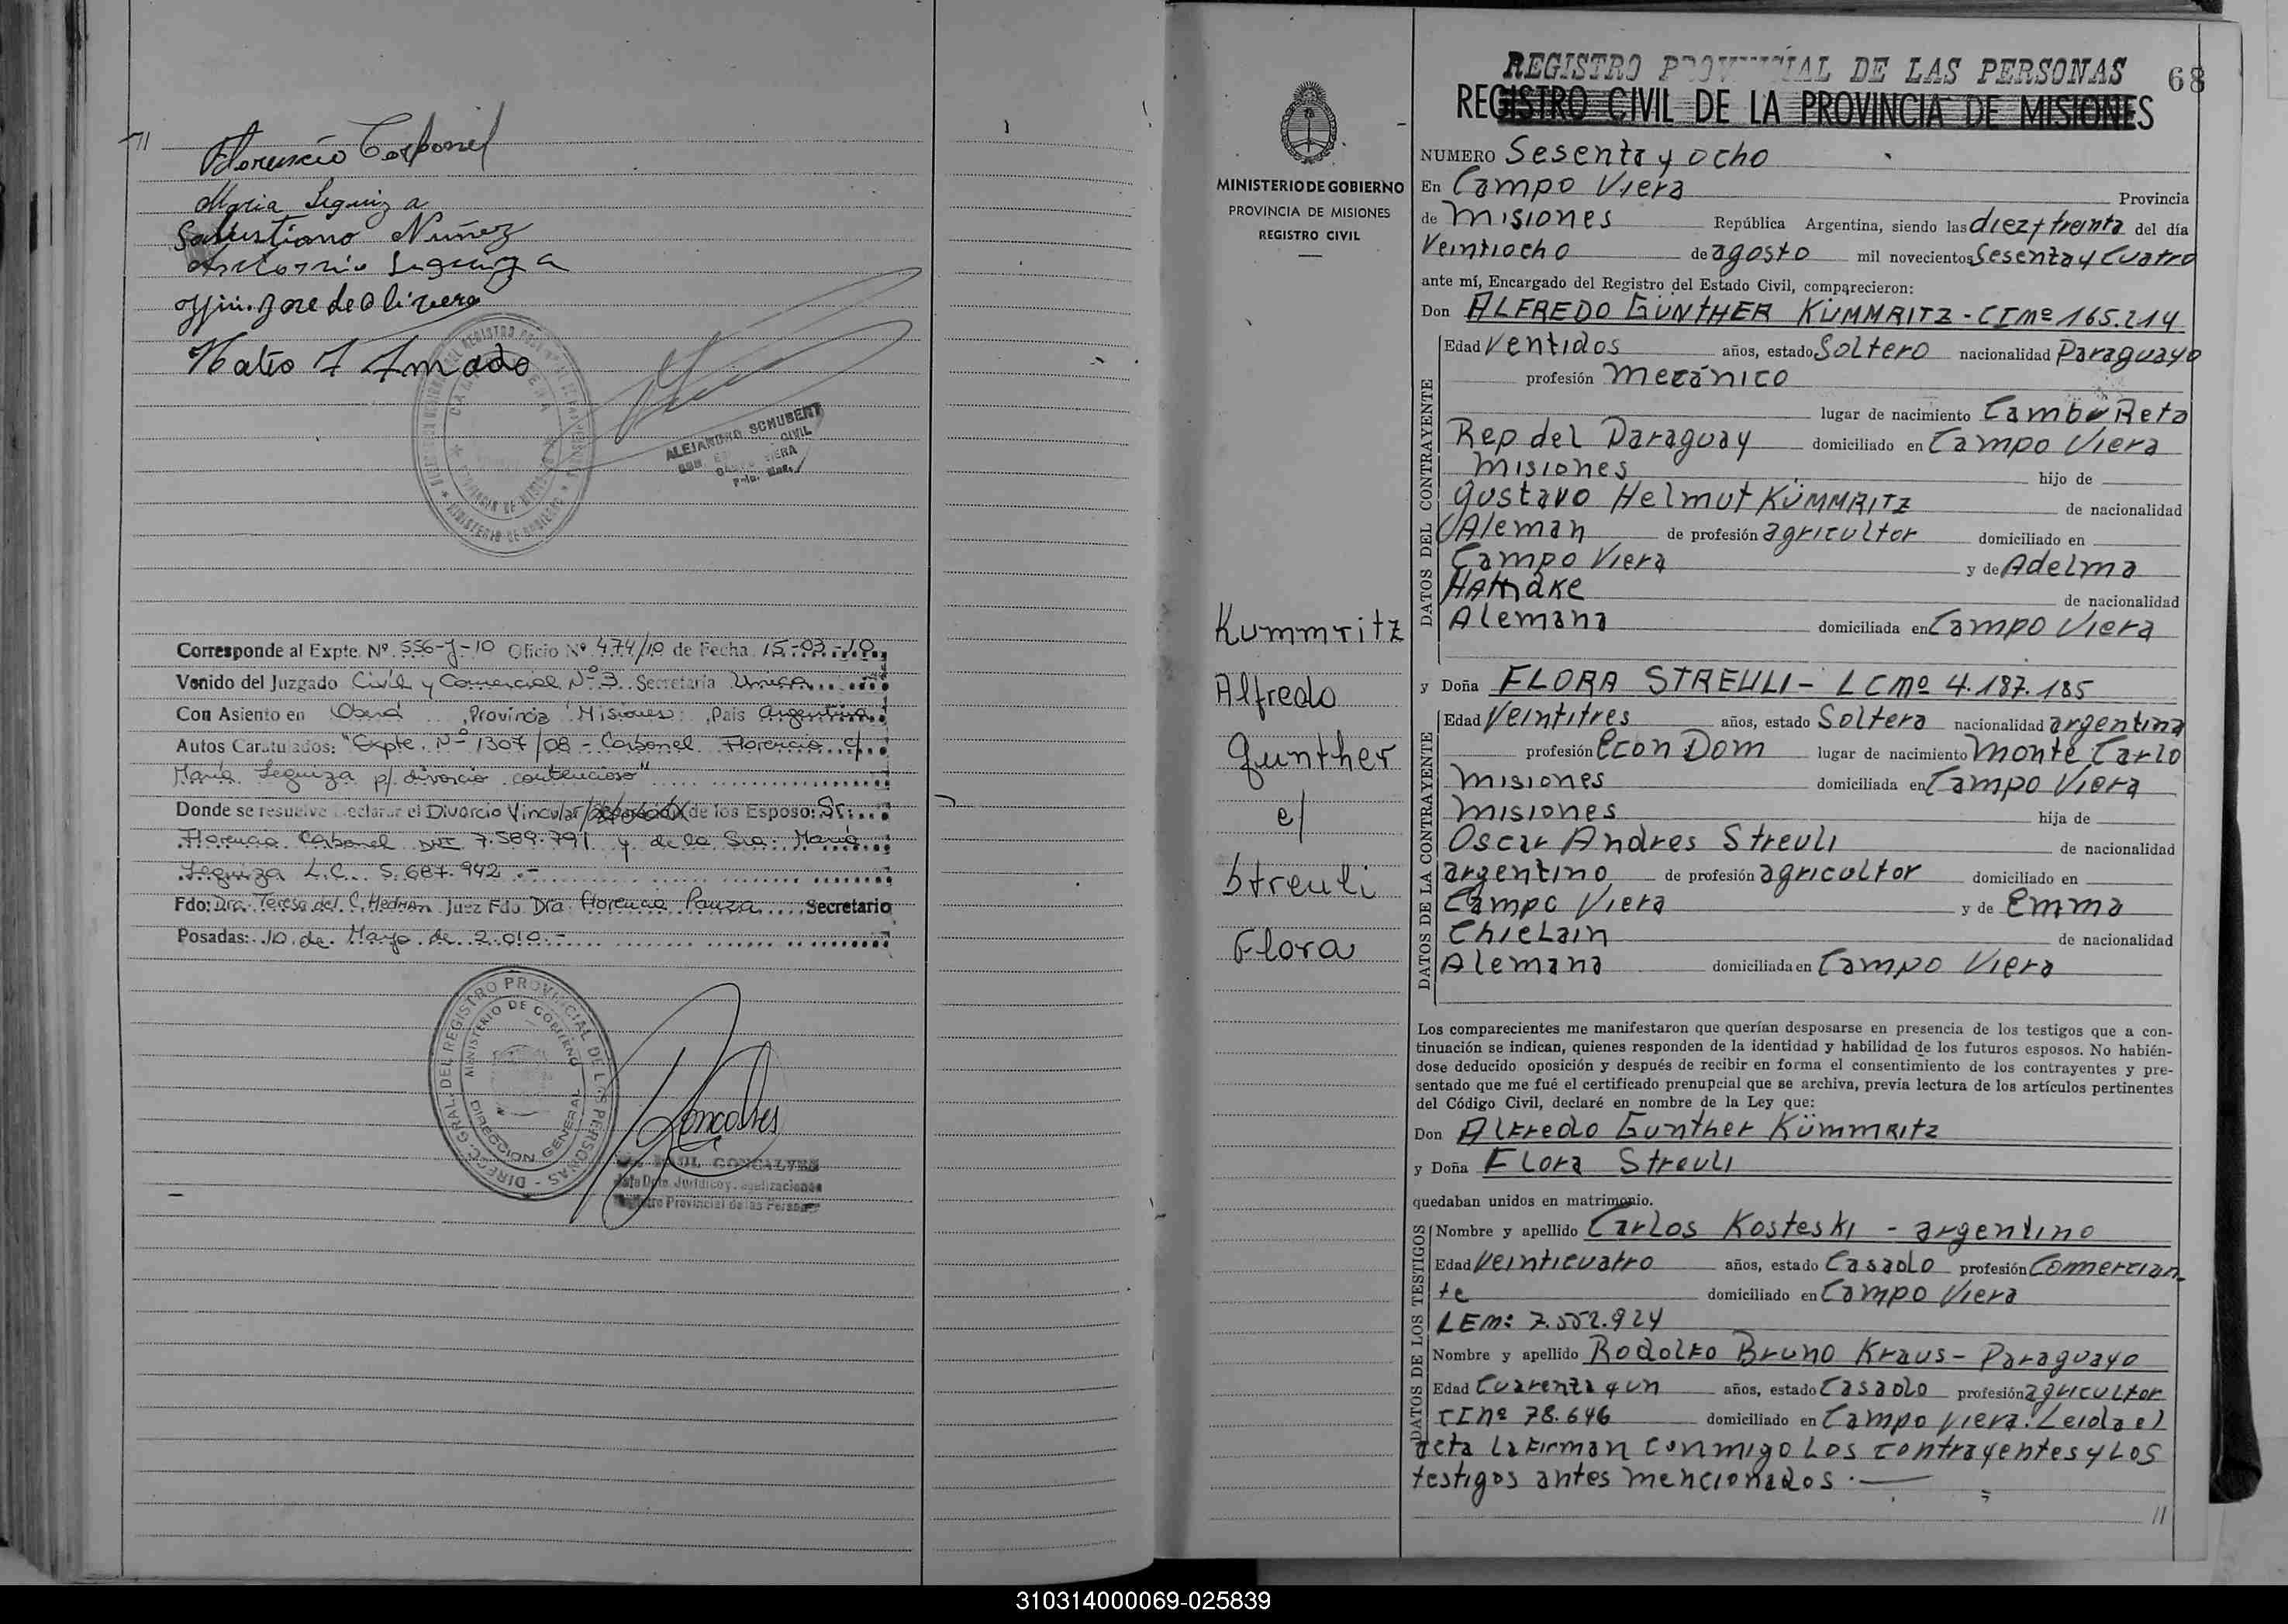 Florencio Corbonel
Maria Seguiz a
Salustiano Nuñez
Antonio Seguiza
José de Olivera
ALEJANDRO SCHUBERT
CIVIL
Corresponde al Expte. Nº 556-J-10 Oficio Nº 474/10 de Fecha 15-03-10
Venido del Juzgado Civil y Comercial Nº 3 Secretaría Unica
Con Asiento en Oberá, Provincia Misiones, País Argentina
Autos Caratulados: "Expte. Nº 1307/08 - Carbonel Florencio c/
María Seguiza p/ divorcio contencioso"
Donde se resuelve Declarar el Divorcio Vincular/ de los Esposo: Sr.
Florencio Carbonel DNI 7.589.791 y de la Sra. María
Seguiza L.C. 5.687.942.-
Fdo: Dra. Teresa del C. Hedman Juez Fdo Dra Florencia Pauza Secretario
Posadas: 10 de Mayo de 2.010.-
DIRECC. GRAL. DEL REGISTRO PROVINCIAL DE LAS PERSONAS
MINISTERIO DE GOBIERNO
DIRECCION GENERAL
Goncalves
RAUL GONCALVES
Jefe Dpto. Jurídico y Legalizaciones
Registro Provincial de las Personas
MINISTERIO DE GOBIERNO
PROVINCIA DE MISIONES
REGISTRO CIVIL
Kummritz
Alfredo
Gunther
c/
Streuli
Flora
REGISTRO PROVINCIAL DE LAS PERSONAS 68
REGISTRO CIVIL DE LA PROVINCIA DE MISIONES
NUMERO Sesenta y ocho
En Campo Viera Provincia
de Misiones República Argentina, siendo las diez y treinta del día
Veintiocho de agosto mil novecientos Sesenta y Cuatro
ante mí, Encargado del Registro del Estado Civil, comparecieron:
Don ALFREDO GÜNTHER KÜMMRITZ - CI Nº 165.214
DATOS DEL CONTRAYENTE
Edad Ventidos años, estado Soltero nacionalidad Paraguayo
profesión Mecánico
lugar de nacimiento Cambu Reta
Rep del Paraguay domiciliado en Campo Viera
Misiones hijo de
Gustavo Helmut KÜMMRITZ de nacionalidad
Aleman de profesión agricultor domiciliado en
Campo Viera y de Adelma
HAMAKE de nacionalidad
Alemana domiciliada en Campo Viera
y Doña FLORA STREULI - LC Nº 4.187.185
DATOS DE LA CONTRAYENTE
Edad Veintitres años, estado Soltera nacionalidad argentina
profesión Econ Dom lugar de nacimiento Monte Carlo
Misiones domiciliada en Campo Viera
Misiones hija de
Oscar Andres Streuli de nacionalidad
argentino de profesión agricultor domiciliado en
Campo Viera y de Emma
Chielain de nacionalidad
Alemana domiciliada en Campo Viera
Los comparecientes me manifestaron que querían desposarse en presencia de los testigos que a con-
tinuación se indican, quienes responden de la identidad y habilidad de los futuros esposos. No habién-
dose deducido oposición y después de recibir en forma el consentimiento de los contrayentes y pre-
sentado que me fué el certificado prenupcial que se archiva, previa lectura de los artículos pertinentes
del Código Civil, declaré en nombre de la Ley que:
Don Alfredo Gunther Kümmritz
y Doña Flora Streuli
quedaban unidos en matrimonio.
DATOS DE LOS TESTIGOS
Nombre y apellido Carlos Kosteski - argentino
Edad Veinticuatro años, estado Casado profesión Comercian-
te domiciliado en Campo Viera
LE Nº 7.552.924
Nombre y apellido Rodolfo Bruno Kraus - Paraguayo
Edad Cuarenta y un años, estado Casado profesión agricultor
CI Nº 78.646 domiciliado en Campo Viera. Leida el
acta la firman conmigo los contrayentes y los
testigos antes mencionados.
310314000069-025839